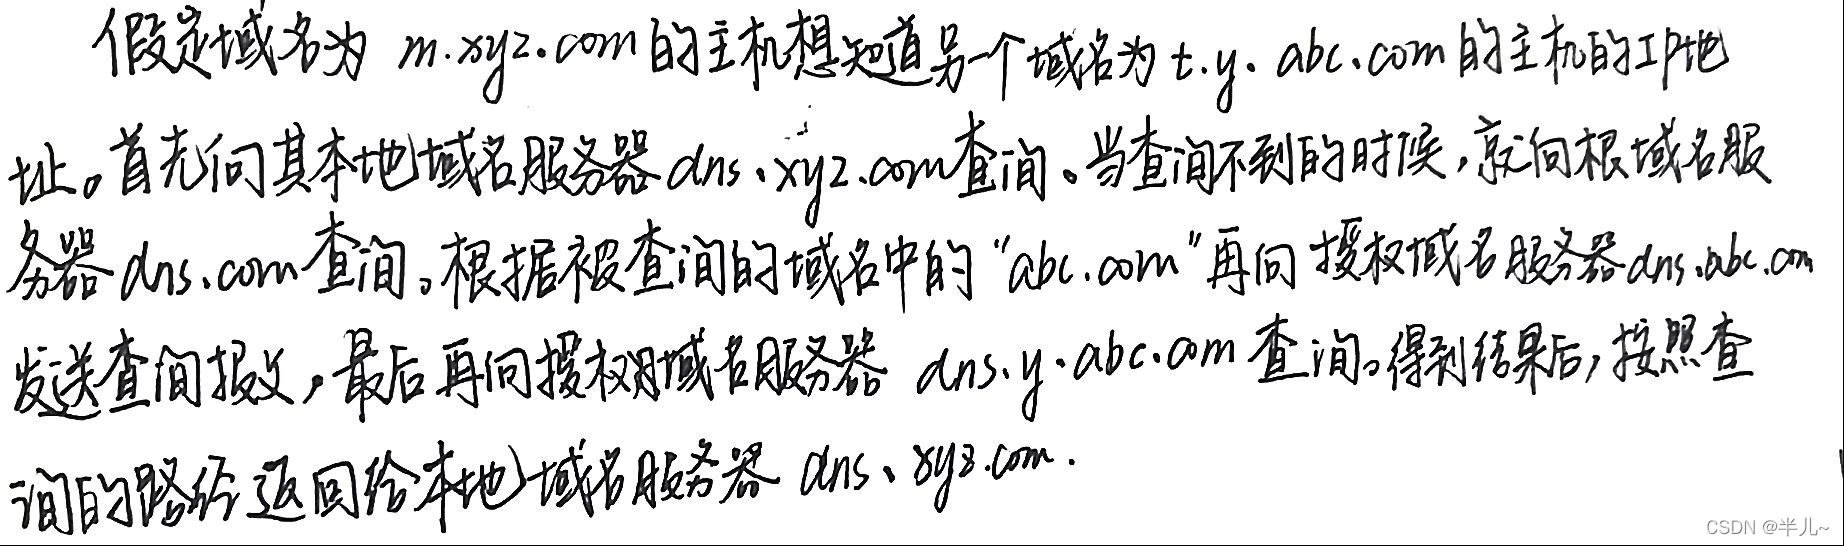 假定域名为 m.xyz.com的主机想知道另一个域名为t.y.abc.com的主机的IP地
址。首先向其本地域名服务器dns.xyz.com查询。当查询不到的时候，就向根域名服
务器dns.com查询。根据被查询的域名中的“abc.com”再向授权域名服务器dns.abc.com
发送查询报文，最后再向授权域名服务器 dns.y.abc.com 查询。得到结果后，按照查
询的路径返回给本地域名服务器 dns.xyz.com.
CSDN @半儿~